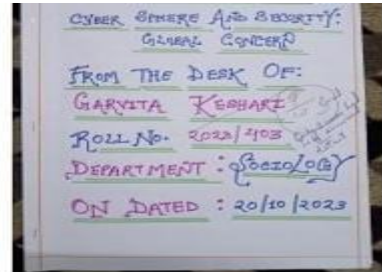 CYBER SPHERE AND SECURITY:
GLOBAL CONCERN
FROM THE DESK OF:
GARVITA KESHARI
ROLL NO. 2023/403
DEPARTMENT : SOCIOLOGY
ON DATED : 20/10/2023